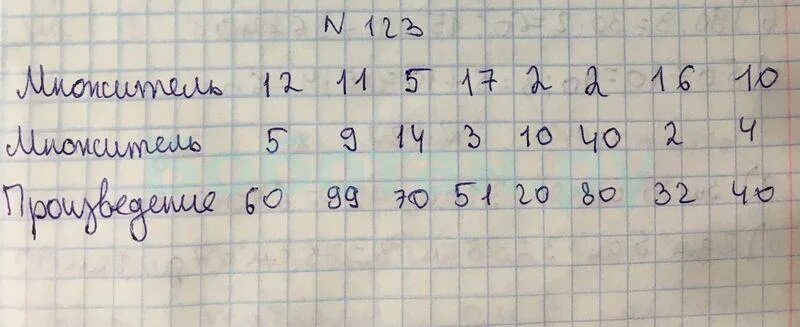 N 123
Множитель 12 11 5 17 2 2 16 10
Множитель 5 9 14 3 10 40 2 4
Произведение 60 99 70 51 20 80 32 40